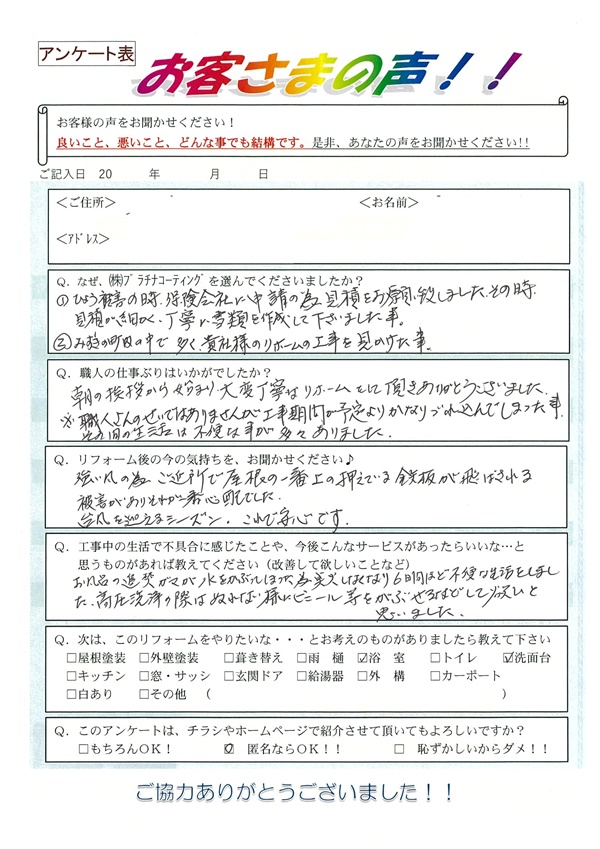 アンケート表
お客さまの声！！
お客様の声をお聞かせください！
良いこと、悪いこと、どんな事でも結構です。是非、あなたの声をお聞かせください!!
ご記入日　20　　年　　月　　日
＜ご住所＞　＜お名前＞
＜ｱﾄﾞﾚｽ＞
Q．なぜ、㈱ﾌﾟﾗﾁﾅｺｰﾃｨﾝｸﾞを選んでくださいましたか？
①ひょう被害の時、保険会社に申請の為、見積をお願い致しました。その時、
見積が細かく、丁寧に書類を作成して下さいました事。
②の中で多く、貴社様のリホームの工事を見かけた事。
Q．職人の仕事ぶりはいかがでしたか？
朝の挨拶から始まり、大変丁寧なリホームをして頂きありがとうございました。
※職人さんのせいではありませんが工事期間が予定よりかなりずれ込んでしまった事
その間の生活は不便な事が多々ありました。
Q．リフォーム後の今の気持ちを、お聞かせください♪
強い風の為、ご近所で屋根の一番上の押えている鉄板が飛ばされる
被害がありそれが一番心配でした。
台風を迎えるシーズン、これで安心です。
Q．工事中の生活で不具合に感じたことや、今後こんなサービスがあったらいいな…と
思うものがあれば教えてください（改善して欲しいことなど）
お風呂の追焚ガマが水をかぶり為6日間ほど不便な生活をしまし
た、高圧洗浄の際はぬれない様にビニール等をかぶせるなどして欲しいと
思いました。
Q．次は、このリフォームをやりたいな・・・とお考えのものがありましたら教えて下さい
□屋根塗装　□外壁塗装　□葺き替え　□雨　樋　☑浴　室　□トイレ　☑洗面台
□キッチン　□窓・サッシ　□玄関ドア　□給湯器　□外　構　□カーポート
□白あり　□その他　（　　　　）
Q．このアンケートは、チラシやホームページで紹介させて頂いてもよろしいですか？
□もちろんOK！　☑　匿名ならOK！！　□　恥ずかしいからダメ！！
ご協力ありがとうございました！！